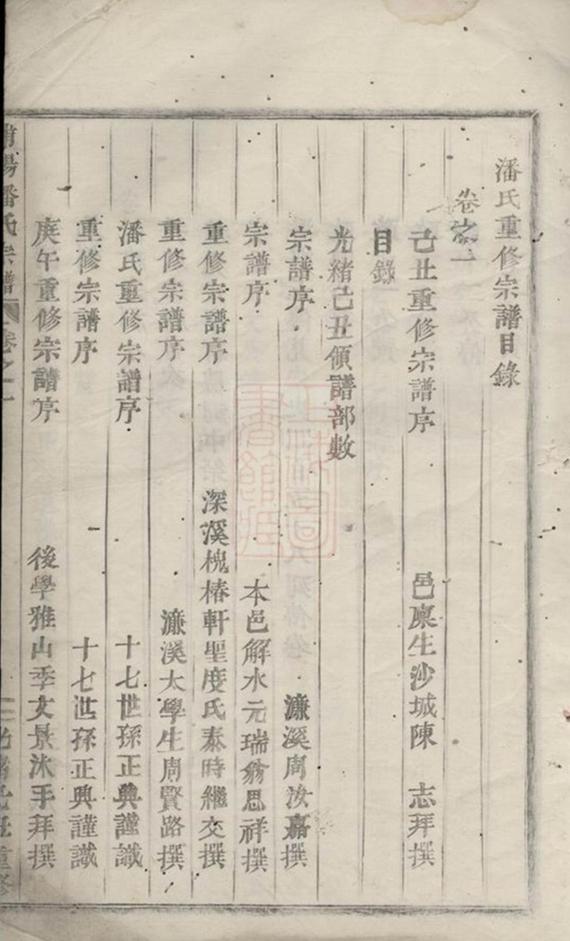 潘氏重修宗譜目錄
卷之一
己丑重修宗譜序 邑廩生沙城陳 志拜撰
目錄
光緒己丑領譜部數
宗譜序 濂溪周汝嘉撰
宗譜序 本邑解水元瑞翁思祥撰
重修宗譜序 深溪槐椿軒聖度氏泰時繼交撰
重修宗譜序 濂溪太學生周賢路撰
潘氏重修宗譜序 十七世孫正典謹識
重修宗譜序 十七世孫正典謹識
庚午重修宗譜序 後學雅山季文景沐手拜撰
陽潘氏宗譜 卷之一 重修